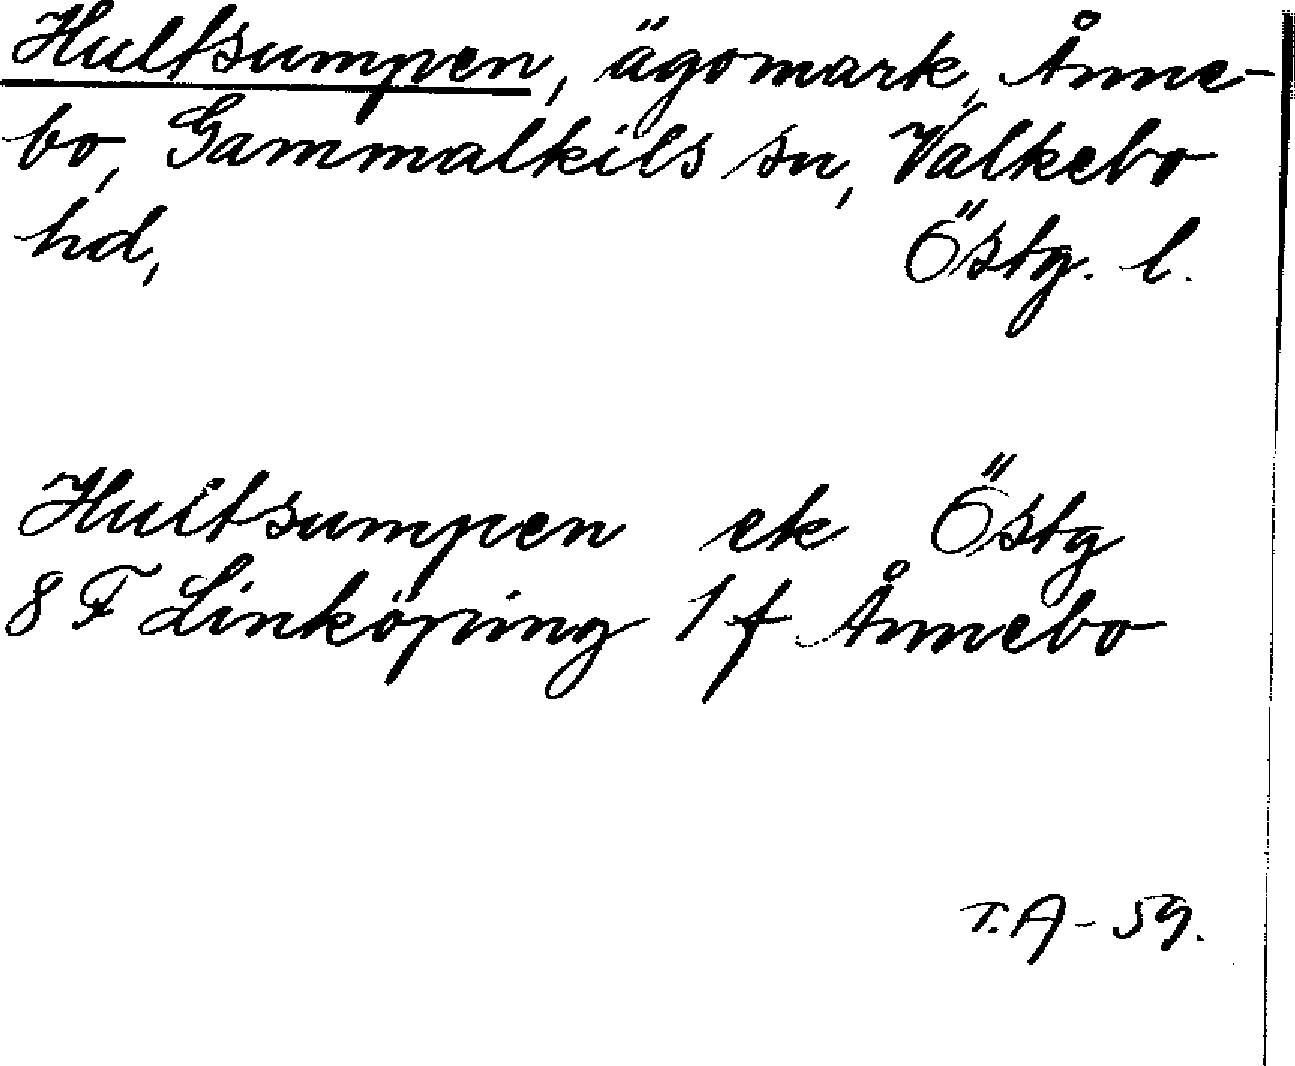 Hultsumpen, ägomark, Änne-
bo, Gammalkils sn, Valkebo
hd, Östg. l.
Hultsumpen ek Östg
8 F Linköping 1 f Ånnebo
T.A - 59.